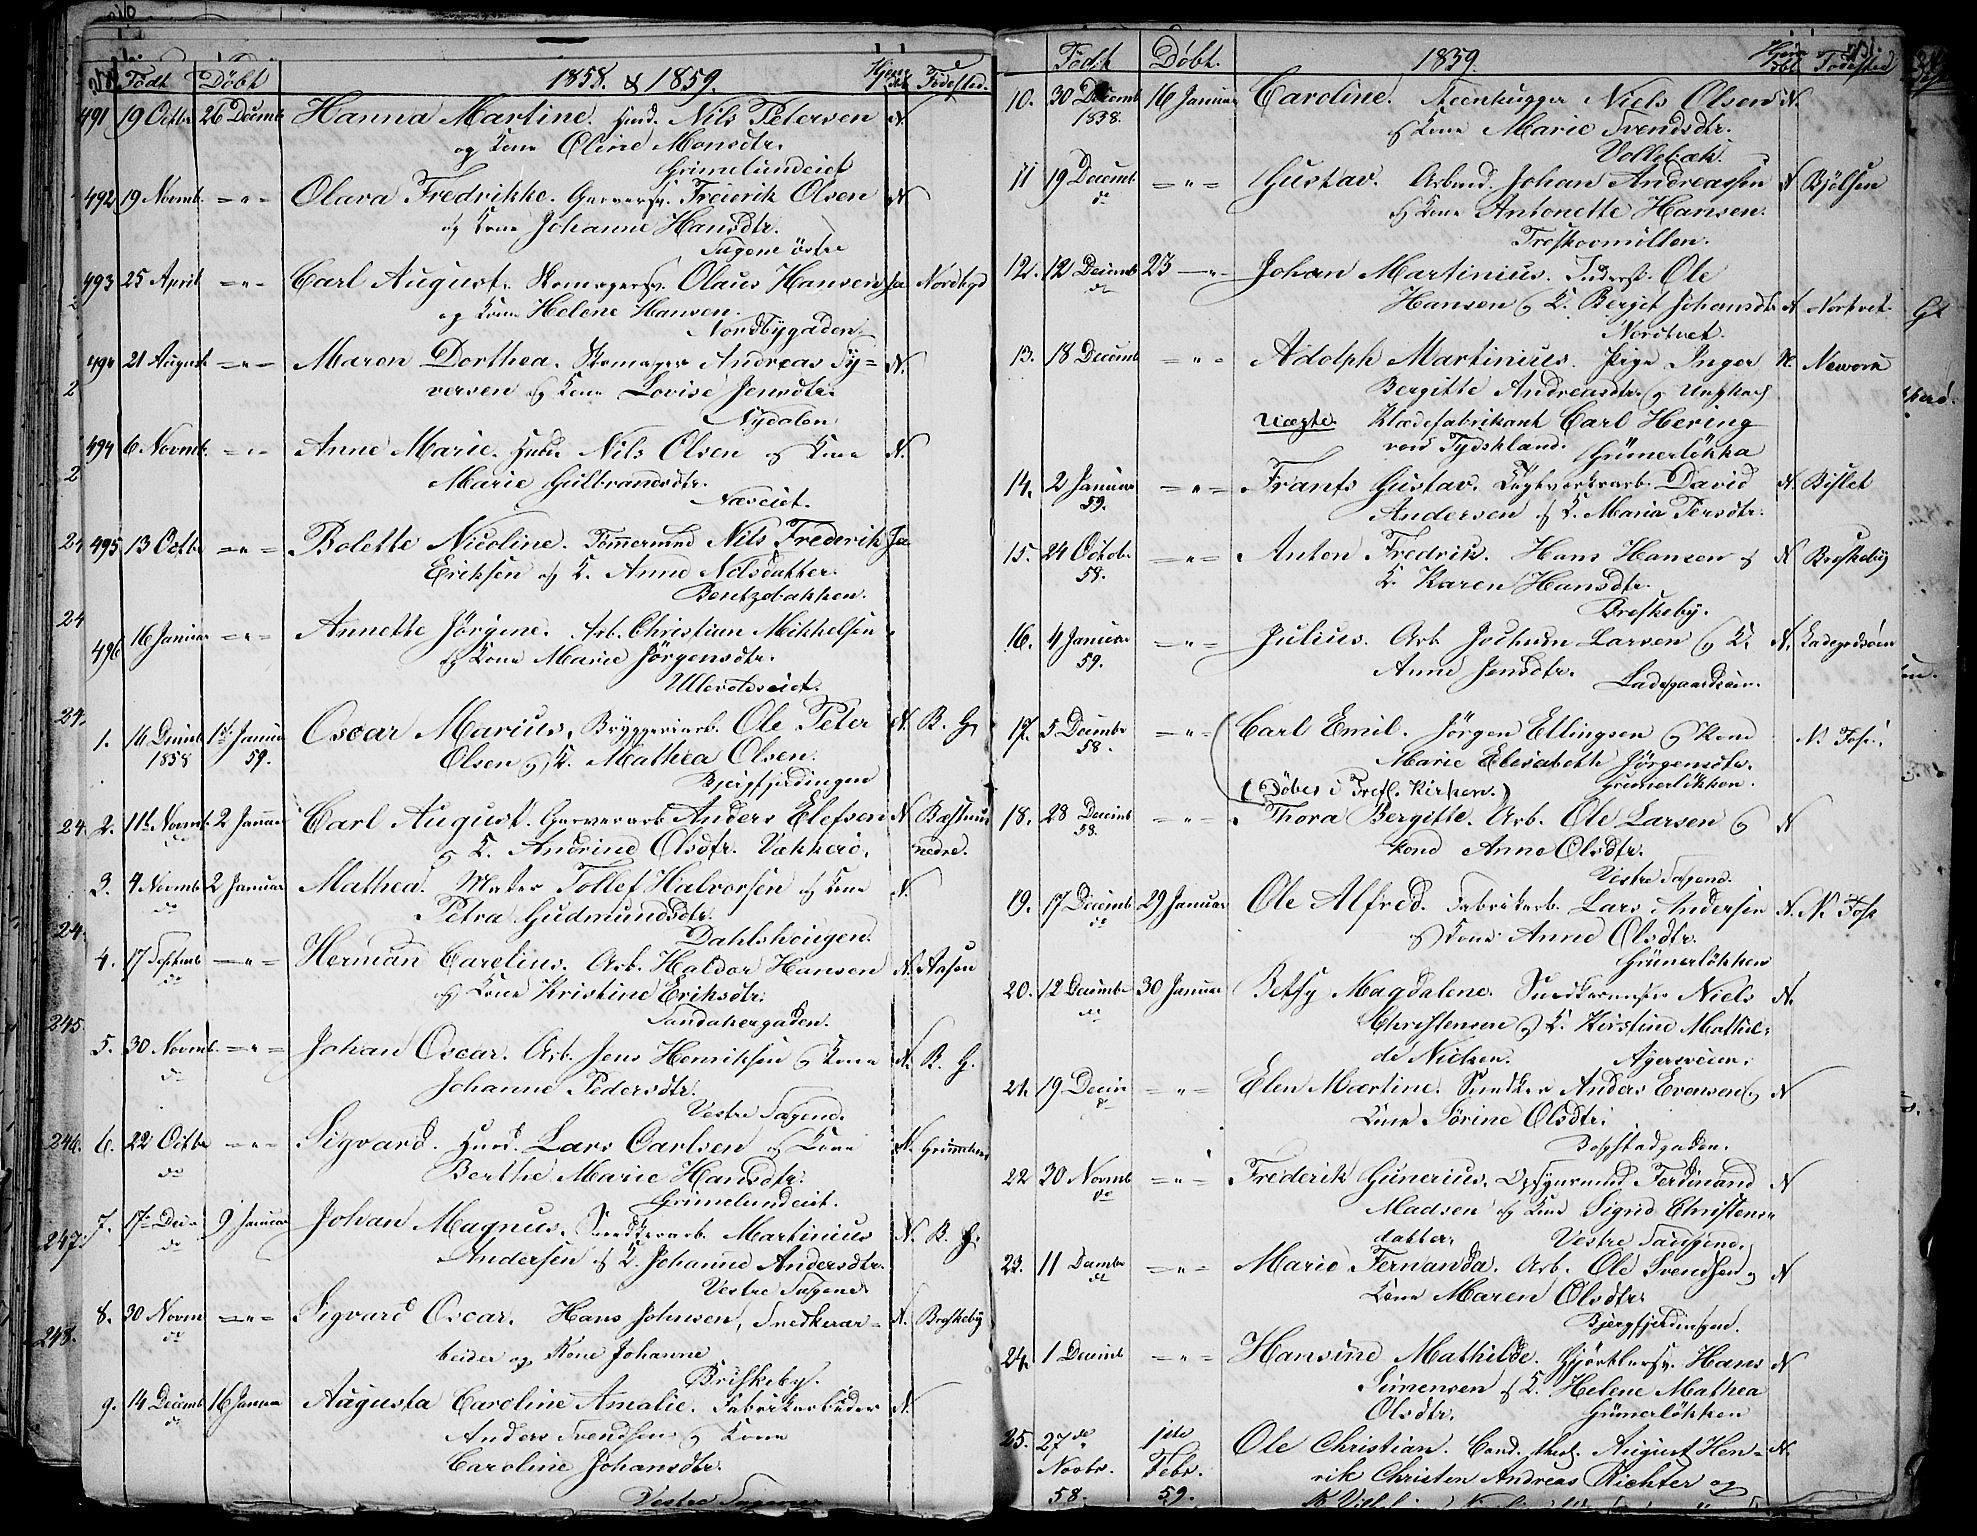 Født Døbt 1858. & 1859. Fødested.
491 19 Octbr 26 Decmb Hanna Martine. Husd. Nils Petersen N.
og Kone Oline Monsdtr.
Grimelundeiet
492 19 Novmb. — " — Olava Fredrikke. Garversv. Frederik Olsen N
og Kone Johanne Hansdtr.
Sagene östre
493 25 April — " — Carl August. Skomagersv. Olaus Hansen Ja Nordbyd
og Kone Helene Hansen.
Nordbygaden
494 21 August — " — Maren Dorthea. Skomager Andreas Sy= N.
versen og Kone Lovise Jensdtr.
Nydalen
494 6 Novmb. — " — Anne Marie. Nils Olsen og Kone N.
Marie Gulbrandsdtr.
Næseiet.
495 13 Octbr — " — Bolette Nicoline. Tømmermd Nils Frederik Ja
Eriksen og K. Anne Nelsdatter.
Bentzebakken.
496 16 Januar — " — Annette Jörgine. Arb. Christian Mikkelsen
og Kone Marie Jörgensdtr.
Ullevoldseiet.
1. 16 Decmb 1858 1ste Januar 59. Oscar Marius. Bryggeriarb. Ole Peter N. B. G
Olsen og K. Mathea Olsen.
Bjergfjerdingen
2. 11te Novmb. do 2 Januar Carl August. Garverarb Anders Elefsen N
og K. Andrine Olsdtr. Vækkerö. nedre.
3. 4 Novmb do 2 Januar Mathea. Maler Tollef Halvorsen og Kone N.
Petra Gudmundsdtr.
Dahlshougen.
4. 17 Septemb do — " — Herman Carelius. Arb. Haldor Hansen N. Aasen
og Kone Kristine Eriksdtr.
Sandakergaden.
5. 30 Novmb. do — " — Johan Oscar. Arb. Jens Henriksen og Kone N. B. G.
Johanne Pedersdtr.
Vestre Sagene.
6. 22 Octbr do — " — Sigvard. Husd. Lars Carlsen og Kone N.
Berthe Marie Hansdtr.
Grimelundeiet.
7. 17de Decm do 9 Januar Johan Magnus. Snedkerarb. Martinius N. B. G.
Andersen og K. Johanne Andersdtr.
Vestre Sagene
8. 30 Novm do — " — Sigvard Oscar. Hans Johnsen, Snedkerar= N. Breskeby
beider og Kone Johanne
Briskeby.
9. 14 Decemb do 16 Januar Augusta Caroline Amalie. Fabrikarbeider N.
Anders Svendsen og Kone
Caroline Johansdtr.
Vestre Sagene
Født. Døbt. 1859. Fødested
10. 30 Decemb 1858. 16 Januar Caroline. Steenhugger Niels Olsen N.
og Kone Marie Svendsdtr.
Vollebæk.
11 19 Decemb do — " — Gustav. Arbmd. Johan Andreassen N Bjölsen
og Kone Antonette Hansen.
12. 12 Decemb do 23 — " — Johan Martinius. Inderst Ole
Hansen og K. Berget Johansdtr N Nortvet
Nordtvet.
13. 18 Decemb — " — Adolph Martinius. Pige Inger N.
Bergitte Andreasdtr. og Ungkarl
uægte. Klædefabrikant Carl Hering
ved Tydskland. Grünerløkka
14. 2 Januar 59. — " — Frants Gustav. Teglverksarb. David N. Bislet
Andersen og K. Maria Persdtr.
15. 24 Octob. 58. — " — Anton Fredrik. Hans Hansen og N Breskeby
K. Karen Hansdtr.
Breskeby.
16. 4 Januar 59. — " — Julius. Arb Jochum Larsen og K. N.
Anne Jensdtr.
Ladegaardsöen.
17. 5 Decembr 58. — " — Carl Emil. Jörgen Ellingsen og Kone
Marie Elisabeth Jörgensdtr.
Grünerlökken.
(Döbes i Trefl. Kirken.)
18. 28 Decemb 58. — " — Thora Bergitte. Arb. Ole Larsen og N
Kone Anne Olsdtr.
Vestre Sagene.
19. 17 Decemb do 29 Januar Ole Alfred. Fabrikarb. Lars Andersen N.
og Kone Anne Olsdtr.
Grünerlökken
20. 12 Decembr do 30 Januar Betsy Magdalene. Snedkermester Niels N.
Christensen og K. Kirstine Mathil=
de Nielsen. Agersveien.
21. 19 Decm do — " — Elen Martine. Snedker Anders Evensen og N
Kone Sörine Olsdtr.
22 30 Novmb do — " — Frederik Gunerius. Opsynsmand Ferdinand N
Madsen og Kone Sigrid Christens=
datter. Vestre Sagene.
23. 11 Decmbr do — " — Marie Fernanda. Arb. Ole Svendsen og N
Kone Maren Olsdtr.
Bjergfjerdingen.
24. 1 Decemb — " — Hansine Mathilde. Hans N
Simensen og K. Helene Mathea
Olsdtr. Grünerlökken
25. 27de Novbr. 58. 1ste Febr. 59. Ole Christian. Cand. theol. August Hen= N.
rik Christen Andreas Richter og